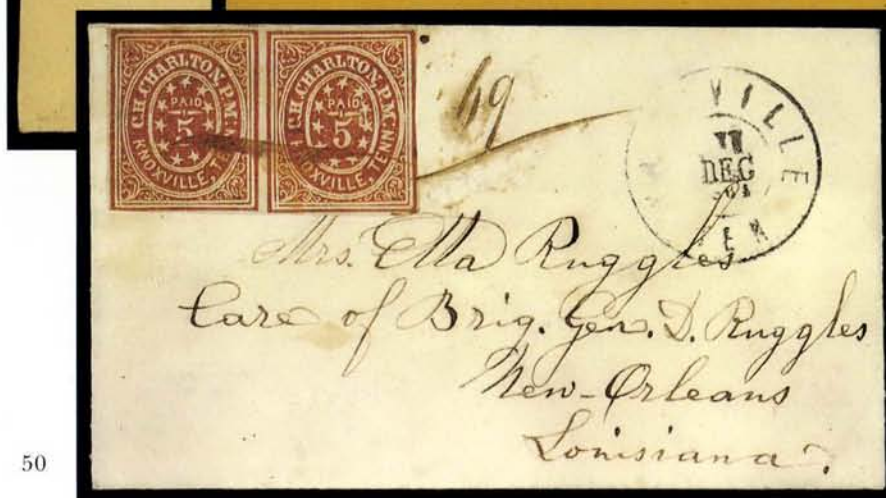 C.H. CHARLTON, P.M.
PAID
5
KNOXVILLE, TENN.
C.H. CHARLTON, P.M.
PAID
5
KNOXVILLE, TENN.
69
VILLE
11
DEC
TEN
Mrs. Ella Ruggles
Care of Brig. Gen. D. Ruggles
New-Orleans
Louisiana.
50